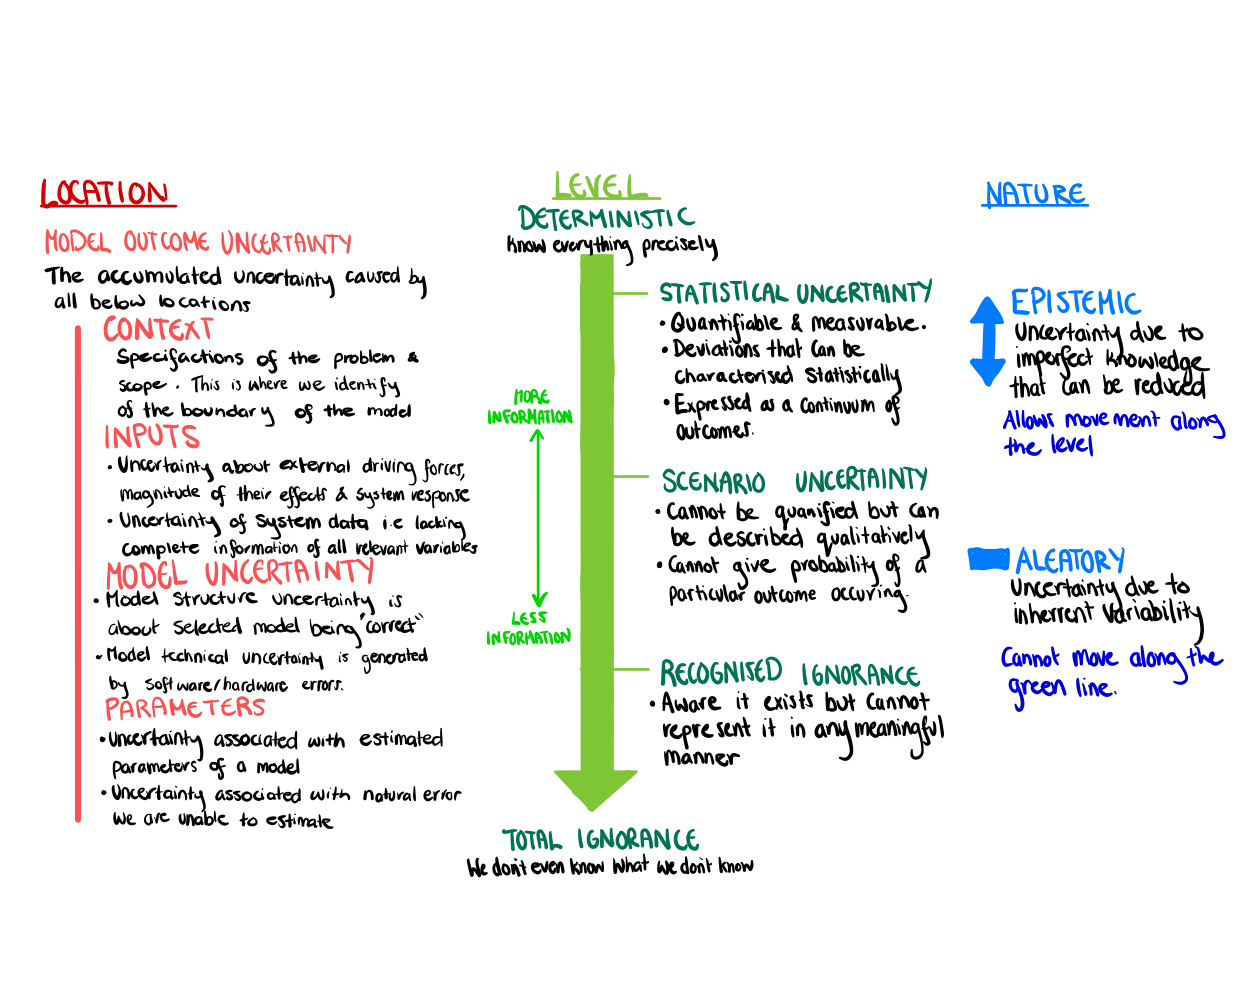 LOCATION
MODEL OUTCOME UNCERTAINTY
The accumulated uncertainty caused by
all below locations
CONTEXT
Specifactions of the problem &
scope. This is where we identify
of the boundary of the model
INPUTS
• Uncertainty about external driving forces,
magnitude of their effects & system response
• Uncertainty of system data i.e lacking
complete information of all relevant variables
MODEL UNCERTAINTY
• Model structure uncertainty is
about selected model being "correct"
• Model technical uncertainty is generated
by software/hardware errors.
PARAMETERS
• Uncertainty associated with estimated
parameters of a model
• Uncertainty associated with natural error
we are unable to estimate
LEVEL
DETERMINISTIC
Know everything precisely
MORE
INFORMATION
LESS
INFORMATION
STATISTICAL UNCERTAINTY
• Quantifiable & measurable.
• Deviations that can be
characterised statistically
• Expressed as a continuum of
outcomes.
SCENARIO UNCERTAINTY
• Cannot be quanified but can
be described qualitatively
• Cannot give probability of a
particular outcome occuring.
RECOGNISED IGNORANCE
• Aware it exists but cannot
represent it in any meaningful
manner
TOTAL IGNORANCE
We don't even know what we don't know
NATURE
EPISTEMIC
Uncertainty due to
imperfect knowledge
that can be reduced
Allows movement along
the level
ALEATORY
Uncertainty due to
inherrent variability
Cannot move along the
green line.